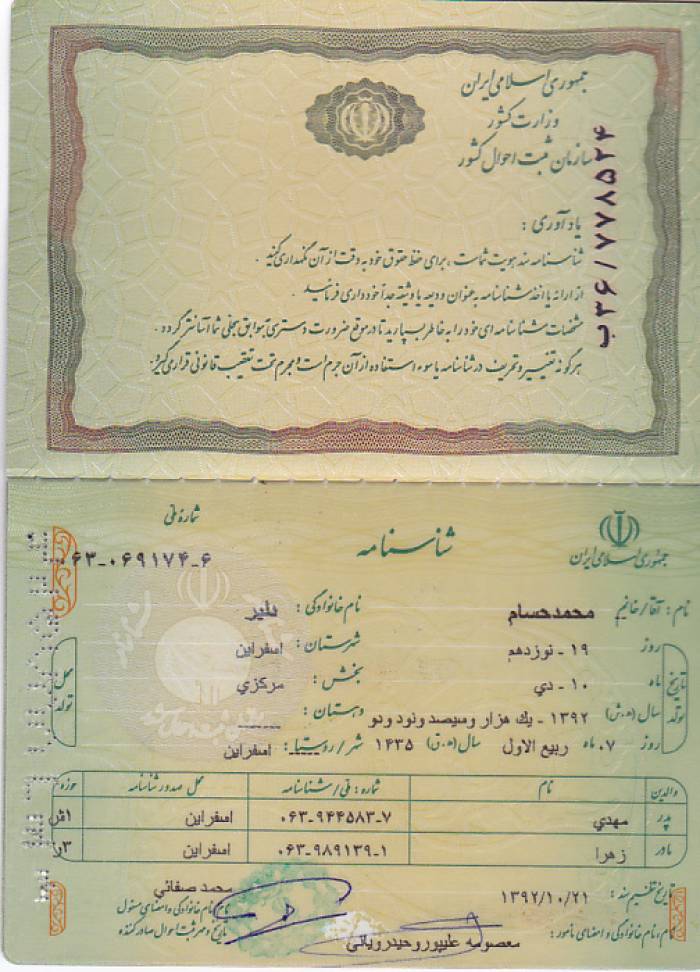 جمهوری اسلامی ایران
وزارت کشور
سازمان ثبت احوال کشور
ب۳۶/۷۷۸۵۲۴
یادآوری :
شناسنامه سند هویت شماست ، برای حفظ حقوق خود به دقت از آن نگهداری کنید .
از ارائه یا اخذ شناسنامه به عنوان ودیعه یا وثیقه جداً خودداری فرمائید .
مشخصات شناسنامه ای خود را به خاطر بسپارید تا در موقع ضرورت دسترسی به سوابق سجلی شما آسانتر گردد .
هرگونه تغییر و تحریف در شناسنامه یا سوء استفاده از آن جرم است و مجرم تحت تعقیب قانونی قرار می گیرد.
جمهوری اسلامی ایران
شناسنامه
شماره ملی
۰۶۳-۰۶۹۱۷۴-۶
نام : آقا/خانم محمدحسام نام خانوادگی : دلیر
تاریخ تولد
روز ۱۹ - نوزدهم
ماه ۱۰ - دي
سال (ه.ش) ۱۳۹۲ - يك هزار وسيصد ونود ودو
روز ۰۷ ماه ربيع الاول سال (ه.ق) ۱۴۳۵
محل تولد
شهرستان : اسفراين
بخش : مركزي
دهستان : ------
شهر / روستا : اسفراين
والدین نام شماره : ملی / شناسنامه محل صدور شناسنامه حوزه
پدر مهدي ۰۶۳-۹۴۴۵۸۳-۷ اسفراين ۱ش
مادر زهرا ۰۶۳-۹۸۹۱۳۹-۱ اسفراين ۳ر
تاریخ تنظیم سند : ۱۳۹۲/۱۰/۲۱
نام ، نام خانوادگی و امضای مأمور : معصومه عليپور وحيد روياني
محمد صفائي
نام ، نام خانوادگی و امضای مسئول
تاریخ و مهر ثبت احوال صادر کننده